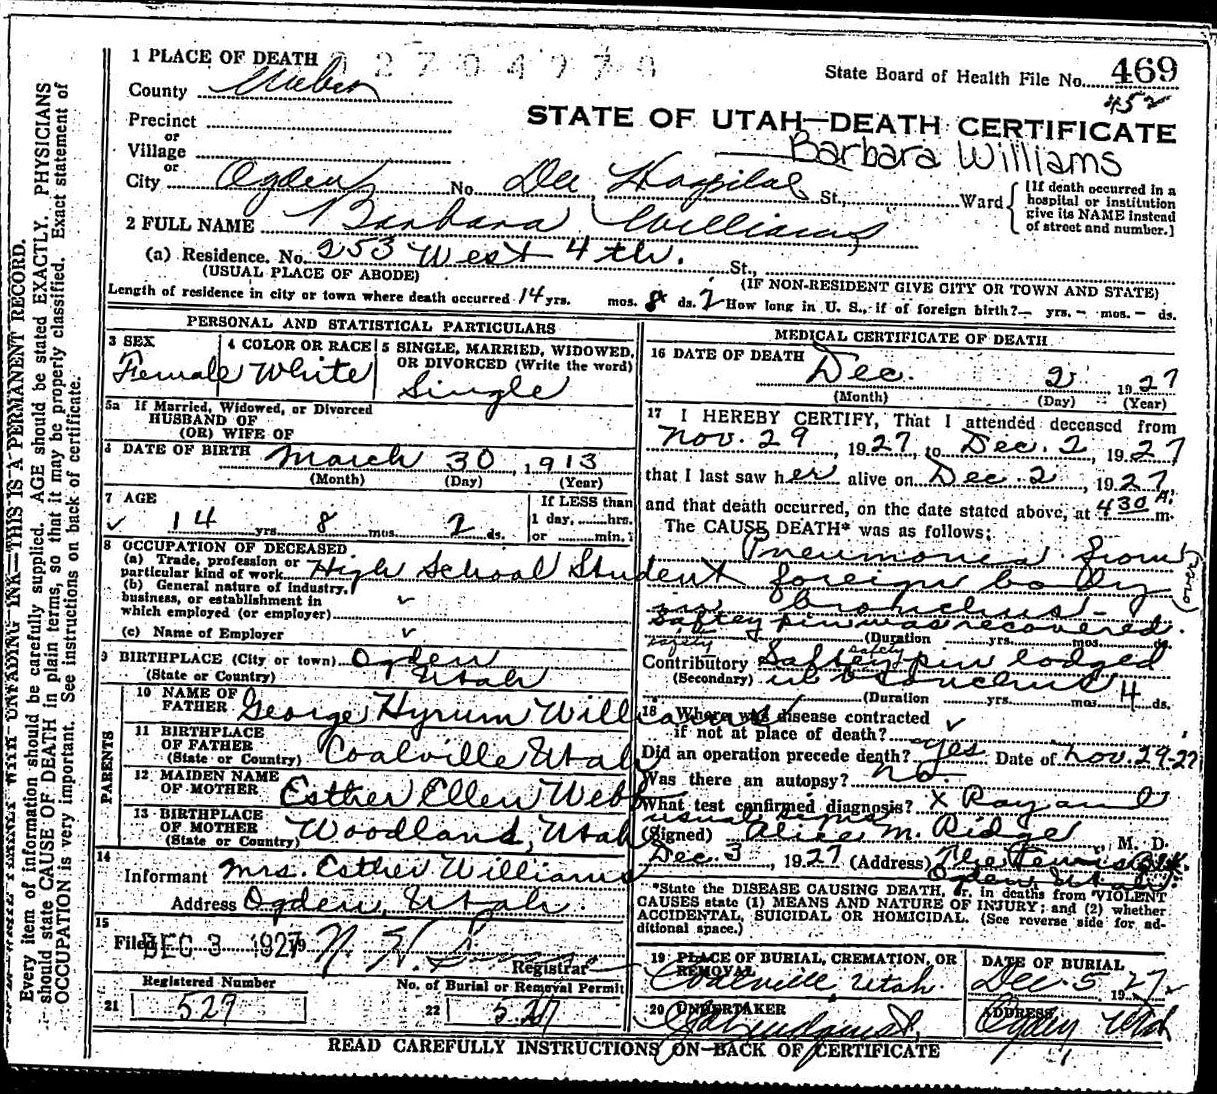 1 PLACE OF DEATH
State Board of Health File No. 469
County Weber
452
STATE OF UTAH—DEATH CERTIFICATE
Precinct
or
Barbara Williams
Village
or
City Ogden No. Dee Hospital St., Ward
[If death occurred in a
hospital or institution
give its NAME instead
of street and number.]
2 FULL NAME Barbara Williams
(a) Residence. No. 253 West 4th. St.,
(USUAL PLACE OF ABODE) (IF NON-RESIDENT GIVE CITY OR TOWN AND STATE)
Length of residence in city or town where death occurred 14 yrs. mos. 8 ds. 2 How long in U. S., if of foreign birth? — yrs. – mos. – ds.
PERSONAL AND STATISTICAL PARTICULARS
3 SEX
Female
4 COLOR OR RACE
White
5 SINGLE, MARRIED, WIDOWED,
OR DIVORCED (Write the word)
Single
5a If Married, Widowed, or Divorced
HUSBAND OF
(OR) WIFE OF
6 DATE OF BIRTH March 30, 1913
(Month) (Day) (Year)
7 AGE
14 yrs. 8 mos. 2 ds.
If LESS than
1 day, hrs.
or min.?
8 OCCUPATION OF DECEASED
(a) Trade, profession or
particular kind of work High School Student
(b) General nature of industry,
business, or establishment in
which employed (or employer)
(c) Name of Employer
9 BIRTHPLACE (City or town) Ogden
(State or Country) Utah
PARENTS
10 NAME OF
FATHER George Hyrum Williams
11 BIRTHPLACE
OF FATHER
(State or Country) Coalville Utah
12 MAIDEN NAME
OF MOTHER Esther Ellen Webb
13 BIRTHPLACE
OF MOTHER
(State or Country) Woodland, Utah
14
Informant Mrs. Esther Williams
Address Ogden, Utah.
15
Filed DEC 3 1927 19
Registrar
Registered Number
21 527
No. of Burial or Removal Permit
22 527
MEDICAL CERTIFICATE OF DEATH
16 DATE OF DEATH
Dec. 2 1927
(Month) (Day) (Year)
17 I HEREBY CERTIFY, That I attended deceased from
Nov. 29, 1927, to Dec. 2, 1927
that I last saw her alive on Dec. 2, 1927
and that death occurred, on the date stated above, at 430 A. m.
The CAUSE DEATH* was as follows:
Pneumonia from
foreign body
in bronchus –
(over)
Saftey pin was recovered.
(Duration yrs. mos.
safety safety
Contributory Saftey pin lodged
(Secondary) in bronchus
(Duration yrs. mos. 4 ds.
18 Where was disease contracted
if not at place of death?
Did an operation precede death? Yes Date of Nov. 29-27
Was there an autopsy? No.
What test confirmed diagnosis? X Ray and
usual signs
(Signed) Alice M. Ridge, M. D.
Dec. 3, 1927 (Address)
Ogden, Utah.
*State the DISEASE CAUSING DEATH, or, in deaths from VIOLENT
CAUSES state (1) MEANS AND NATURE OF INJURY; and (2) whether
ACCIDENTAL, SUICIDAL OR HOMICIDAL. (See reverse side for ad-
ditional space.)
19 PLACE OF BURIAL, CREMATION, OR
REMOVAL
Coalville, Utah.
DATE OF BURIAL
Dec. 5 1927
20 UNDERTAKER
ADDRESS
Ogden Utah
READ CAREFULLY INSTRUCTIONS ON BACK OF CERTIFICATE
WITH UNFADING INK—THIS IS A PERMANENT RECORD.
Every item of information should be carefully supplied. AGE should be stated EXACTLY. PHYSICIANS
should state CAUSE OF DEATH in plain terms, so that it may be properly classified. Exact statement of
OCCUPATION is very important. See instructions on back of certificate.